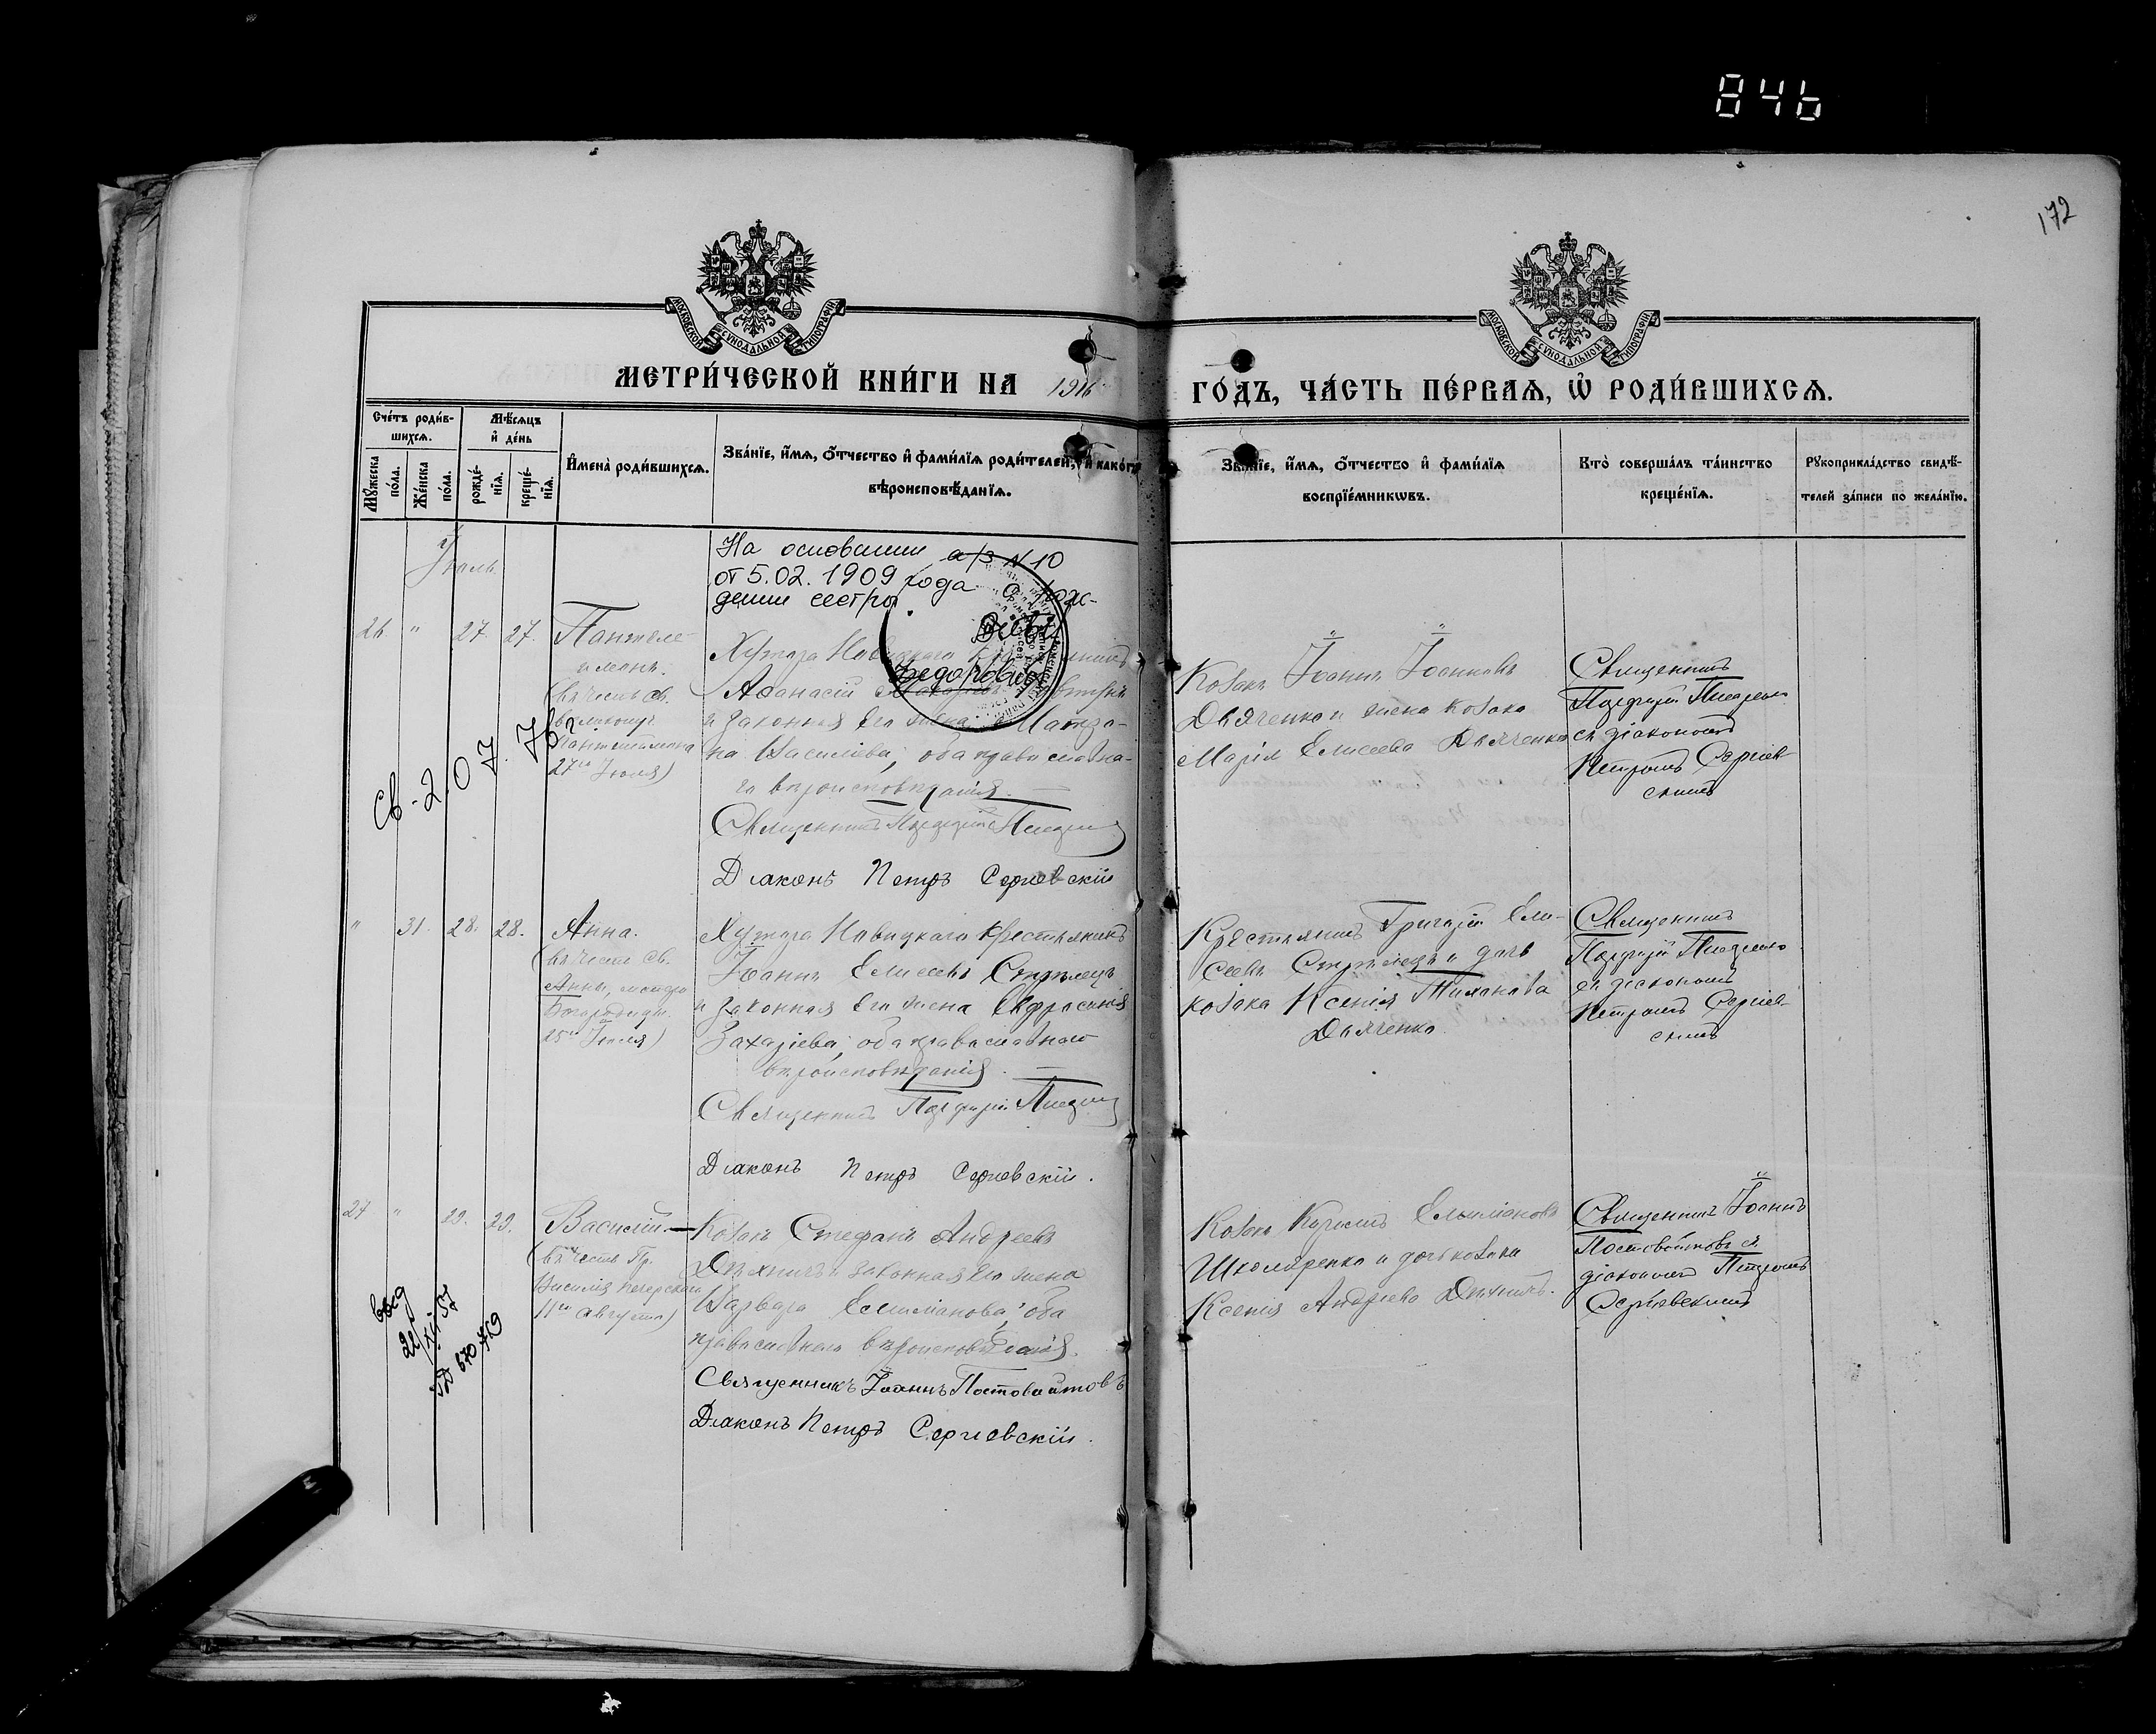 846
172
МОСКОВСКОЙ СѴНОДАЛЬНОЙ ТИПОГРАФІИ
МОСКОВСКОЙ СѴНОДАЛЬНОЙ ТИПОГРАФІИ
МЕТРИ́ЧЕСКОЙ КНИ́ГИ НА 1916 ГО́ДЪ, ЧА́СТЬ ПЕ́РВАѦ, Ѡ҆ РОДИ́ВШИХСѦ.
Сче́тъ роди́в-
шихсѧ.
Мѣ́сѧцъ
и҆ де́нь
Мꙋ́жеска
по́ла.
Же́нска
по́ла.
рожде́-
нїѧ.
креще́-
нїѧ.
И҆мена̀ роди́вшихсѧ.
Зва́нїе, и҆́мѧ, ѻ҆́тчество и҆ фами́лїѧ роди́телей, и҆ како́гѡ
вѣроисповѣ́данїѧ.
Зва́нїе, и҆́мѧ, ѻ҆́тчество и҆ фами́лїѧ
воспрїе́мникѡвъ.
Кто̀ соверша́лъ та́инство
креще́нїѧ.
Рꙋкоприкла́дство свидѣ́-
телей за́писи по жела́нїю.
Іюль
На основании а/з N 10
от 5.02.1909 года о рож-
дении сестры
Федоровой
26 " 27. 27. Пантеле-
имонъ.
(въ честь св.
великомуч.
Пантелеимона
27го Іюля)
св-2.07.76г
Хутора Новицкаго
Аѳанасій
и законная его жена Матро-
на Василіева, оба православна-
го вѣроисповѣданія.
Священникъ Порфирій Писаренко
Діаконъ Петръ Сергіевскій
Козакъ Іоаннъ Іоанновъ
Дьяченко и жена козака
Марія Елисеева Дьяченко
Священникъ
Порфирій Писаренко
съ діакономъ
Петромъ Сергіев-
скимъ
" 31. 28. 28. Анна.
(въ честь св.
Анны, матери
Богородицы
25го Іюля)
Хутора Новицкаго крестьянинъ
Іоаннъ Елисеевъ Стрѣлецъ
и законная его жена Евфросинія
Захаріева, оба православнаго
вѣроисповѣданія.
Священникъ Порфирій Писаренко
Діаконъ Петръ Сергіевскій.
Крестьянинъ Григорій Ели-
сеевъ Стрѣлецъ и дочь
козака Ксенія Тихонова
Дьяченко.
Священникъ
Порфирій Писаренко
съ діакономъ
Петромъ Сергіев-
скимъ
27 " 29. 29. Василій.
(въ честь Пр.
Василія печерскаго
11го августа)
Козакъ Стефанъ Андреевъ
и законная его жена
Варвара Емиліанова, оба
православнаго вѣроисповѣданія.
Священникъ Іоаннъ Постовойтовъ
Діаконъ Петръ Сергіевскій.
Козакъ Емиліановъ
Шкляренко и дочь козака
Ксенія Андреева
Священникъ Іоаннъ
Постовойтовъ съ
діакономъ Петромъ
Сергіевскимъ